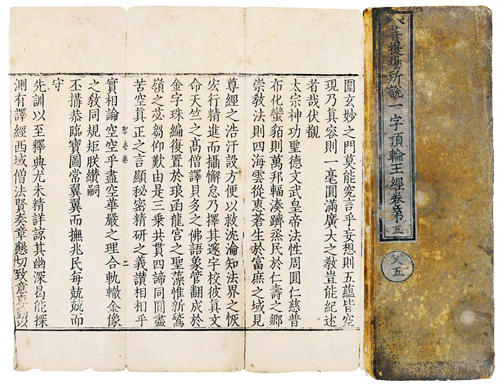 菩提場所說一字頂輪王經卷第五
父五
圓玄妙之門莫能究言乎妄想則五蘊皆空
現乃真容則一毫圓滿廣大之教豈能紀述
者哉伏觀
太宗神功聖德文武皇帝法性周圓仁慈普
布化蠻貊則萬邦輻湊躋烝民於仁壽之鄉
崇敎法則四海雲從衷蒼生於富庶之域見
尊經之浩汗設方便以救沈淪知法界之恢
宏行精進而攝懈怠乃擇其邃宇校彼真文
命天竺之高僧譯貝多之佛語象管翻成於
金字珠編復置於琅函龍宮之聖藻惟新鷲
嶺之苾蒭仰歎由是三乘共貫四諦同圓盡
苦空真正之言顯祕密精研之義讚相相乎
實相論空空乎盡空華嚴之理合軌轍金像
之敎同規矩朕纘嗣
丕搆恭臨寶圖常翼翼而撫兆民每兢兢而
守
先訓以至釋典尤未精詳諒其幽深曷能探
測有譯經西域僧法賢奏章懇切致